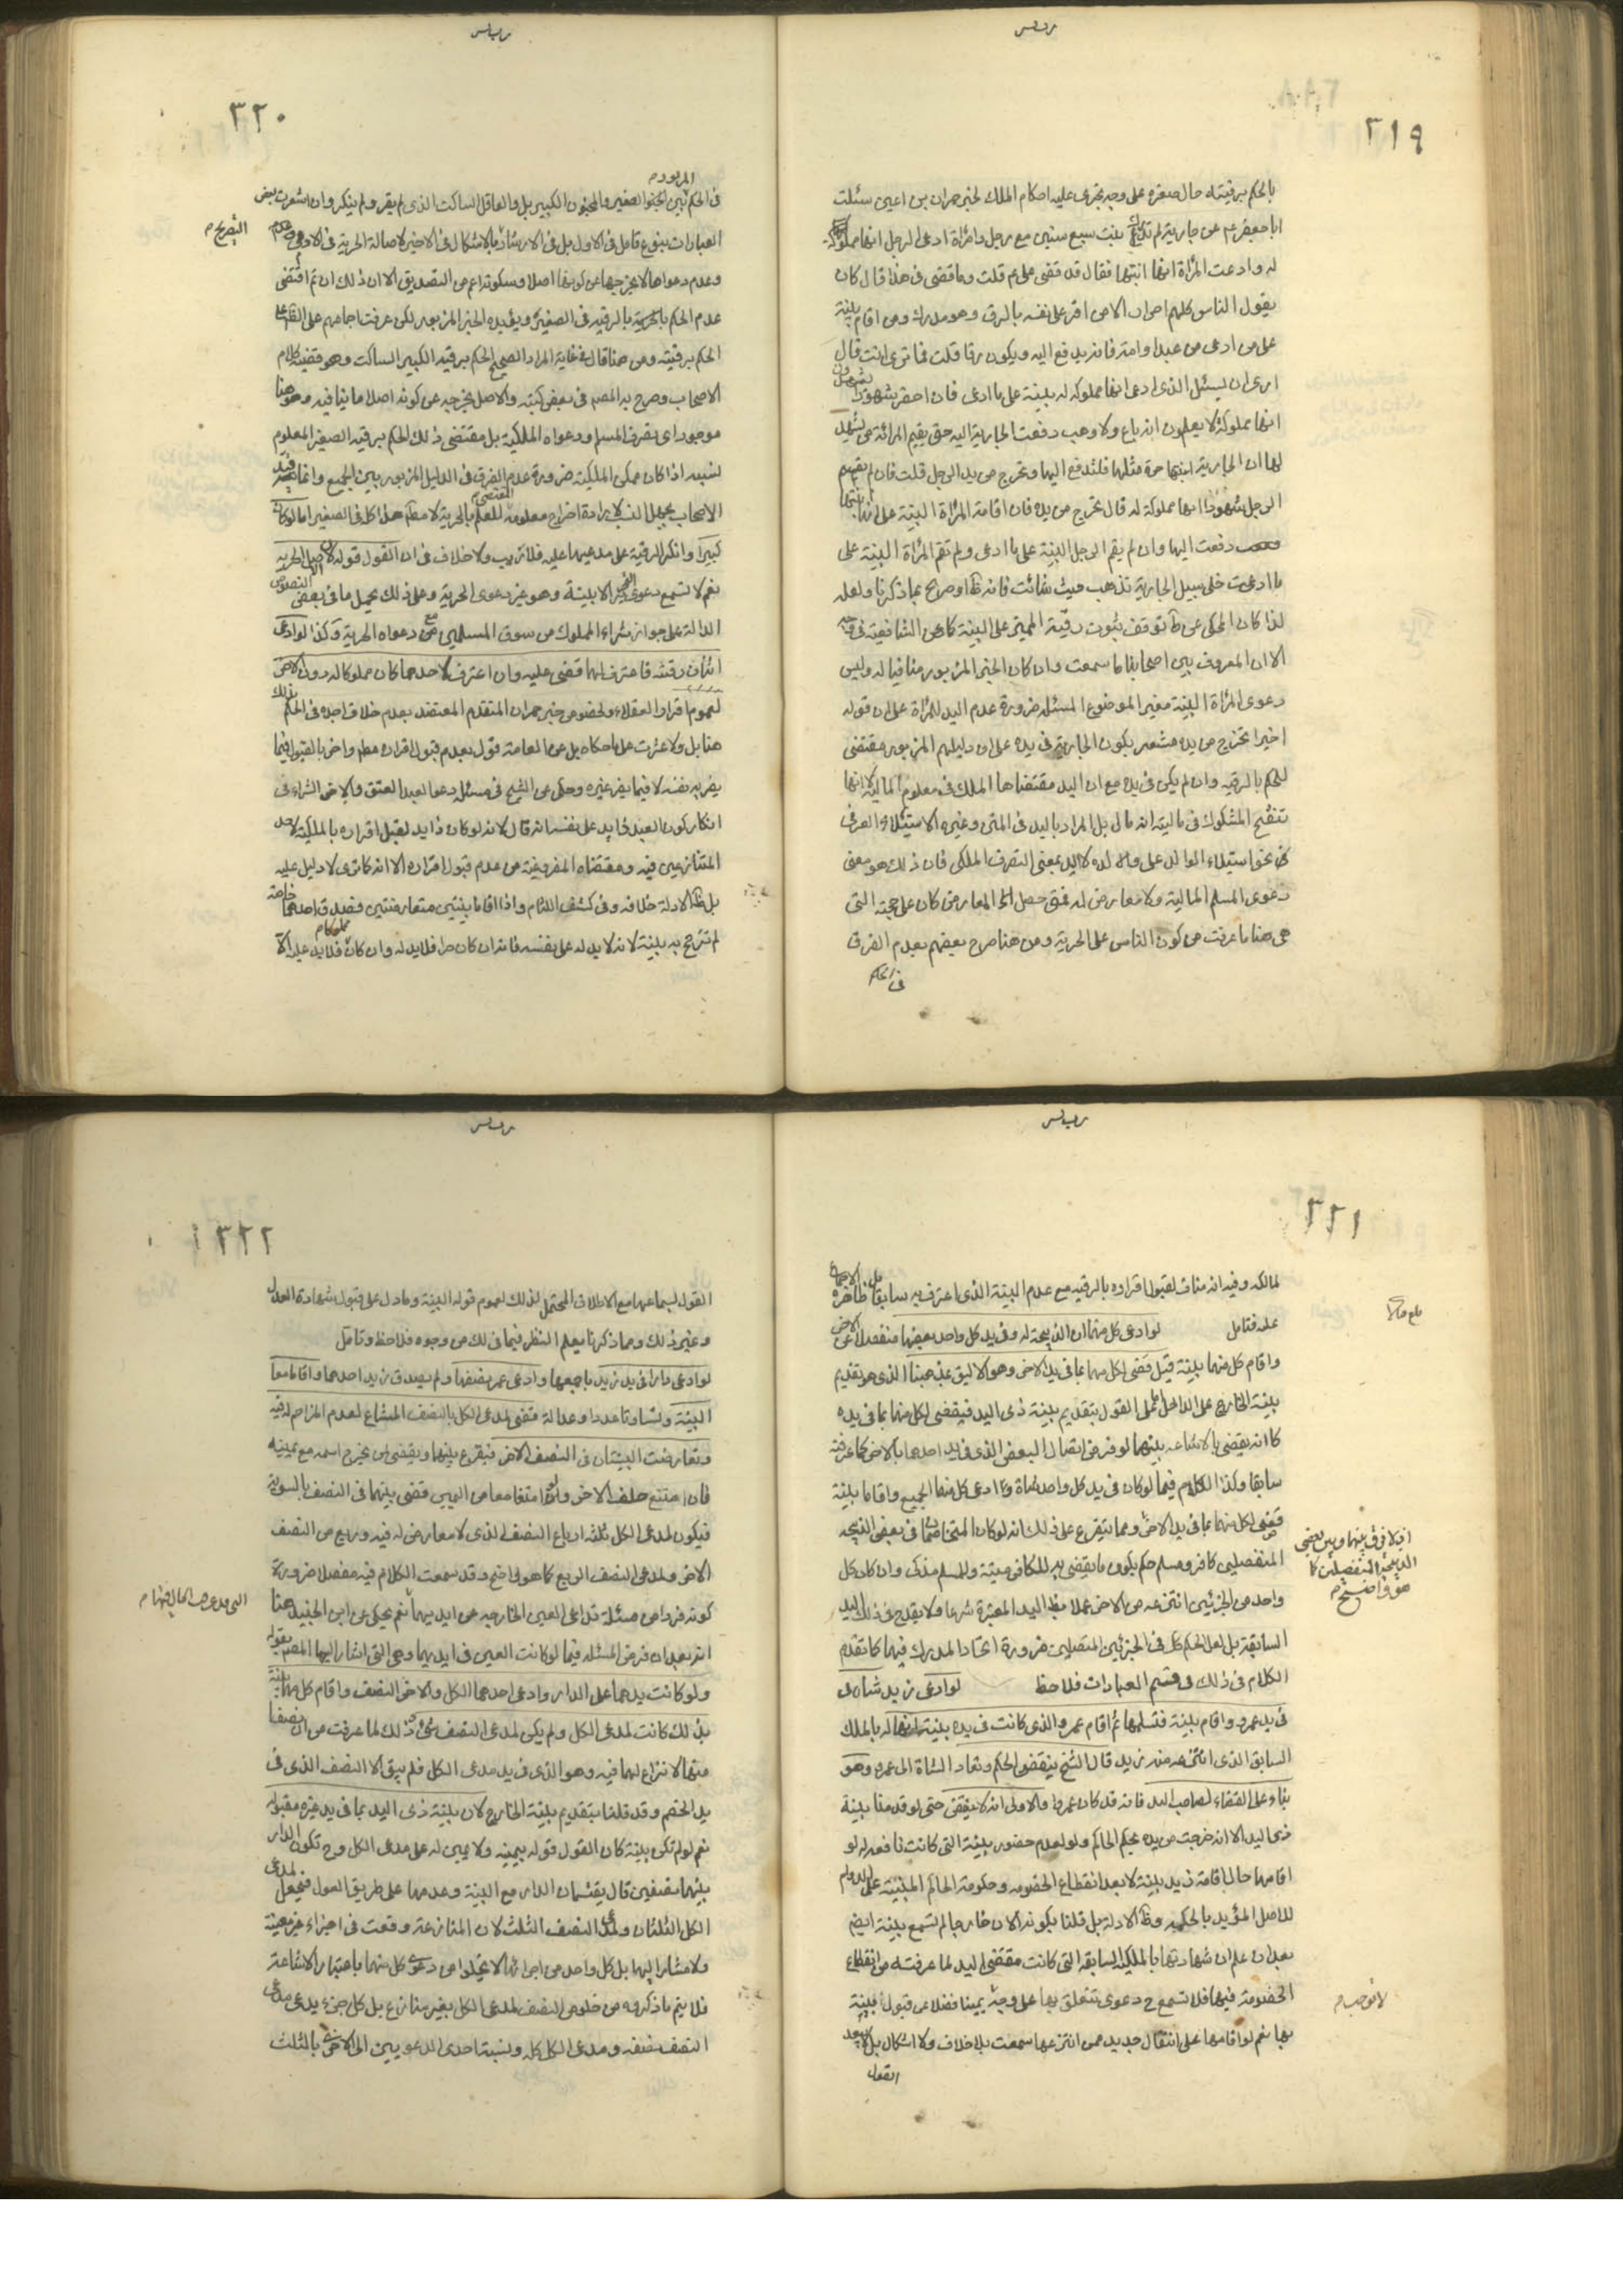 ٣١٩
بالحكم برقيته حال صغره على وجه يجرى عليه احكام الملك لخبر حمران بن اعين سئلت
ابا جعفر ع عن جارية لم تدرك بنت سبع سنين مع رجل وامرأة ادعى الرجل انها مملوكة
له وادعت المرأة انها ابنتها فقال قد قضى على ع قلت وما قضى فى هذا قال كان
يقول الناس كلهم احرار الا من اقر على نفسه بالرق وهو مدرك ومن اقام بينة
على من ادعى من عبد او امة فانه يدفع اليه ويكون رقا قلت فما ترى انت قال
ارى ان يسئل الذى ادعى انها مملوكة له بينة على ما ادعى فان احضر شهودا يشهدون
انها مملوكة لا يعلمون انه باع ولا وهب دفعت الجارية اليه حتى يقيم المرائة من يشهد
لها ان الجارية ابنتها حرة مثلها فلتدفع اليها وتخرج من يد الرجل قلت فان لم يقم
الرجل شهودا انها مملوكة له قال تخرج من يده فان اقامة المرأة البينة على انها ابنتها
دفعت اليها وان لم يقم الرجل البينة على ما ادعى ولم تقم المرأة البينة على
ما ادعت خلى سبيل الجارية تذهب حيث شائت فانه ظ او صريح بما ذكرنا ولعله
لذا كان المحكى عن ط توقف ثبوت رقية المميز على البينة كما عن الشافعية فى وجه
الا ان المعروف بين اصحابنا ما سمعت وان كان الخبر المزبور منافيا له وليس
دعوى المرأة البينة مغير الموضوع المسئلة ضرورة عدم اليد للمرأة على ان قوله
اخيرا تخرج من يده مشعر بكون الجارية فى يده على ان دليلهم المزبور مقتضى
للحكم بالرقية وان لم يكن فى يده مع ان اليد مقتضاها الملك فى معلوم المالية لا انها
تنقح المشكوك فى ماليته انه مال بل المراد باليد فى المتن وغيره الاستيلاء العرفى
نحو استيلاء الوالد على ولده لا اليد بمعنى التصرف الملكى فان ذلك هو معنى
دعوى المسلم المالية ولا معارض له فمتى حصل المعارض كان على حجته التى
هى هنا ما عرفت من كون الناس على الحرية ومن هنا صرح بعضهم بعدم الفرق
فى الحكم
٣٢٠
المزبور م
فى الحكم بين المجنون الصغير والمجنون الكبير بل والعاقل الساكت الذى لم يقر ولم ينكر وان اشعرت بعض
التصريح م
العبارات بنوع تامل فى الاول بل فى الارشاد بالاشكال فى الاخير لاصالة الحرية فى الادمى
وعدم دعواها لا يخرجها عن كونها اصلا وسكوته اعم من التصديق الا ان ذلك ان تم اقتضى
عدم الحكم بالرقية فى الصغير ويؤيده الخبر المزبور لكن عرفت اجماعهم على
الحكم برقيته ومن هنا قال فى غاية المراد الصحيح الحكم برقية الكبير الساكت وهو قضية كلام
الاصحاب وصرح به المصم فى بعض كتبه والاصل يخرجه عن كونه اصلا ما ينافيه وهو هنا
موجود اى تصرف المسلم ودعواه الملكية بل مقتضى ذلك الحكم برقية الصغير المعلوم
نسبه اذا كان ممكن الملكية ضرورة عدم الفرق فى الدليل المزبور بين الجميع وانما قيده
الاصحاب بجهل النسب لارادة اخراج معلومه المقتضى للعلم بالحرية لا مطلقا هذا كله فى الصغير اما لو كان
كبيرا وانكر الرقية على مدعيها عليه فلا ريب ولا خلاف فى ان القول قوله لان الاصل الحرية
نعم لا تسمع دعوى الا ببينة وهو غير دعوى الحرية وعلى ذلك يحمل ما فى بعض النصوص
الدالة على جواز شراء المملوك من سوق المسلمين مع دعواه الحرية وكذا لو ادعى
اثنان رقيته فاعترف لهما قضى عليه وان اعترف لاحدهما كان مملوكا له دون الاخر
لعموم اقرار العقلاء ولخصوص خبر حمران المتقدم المعتضد بعدم خلاف اجده فى الحكم بذلك
هنا بل ولا عثرت على ما حكاه بل عن العامة قول بعدم قبول اقراره مطم واخر بالقبول فيما
يضر به نفسه لا فيما يضر غيره وحكى عن الشيخ فى مسئلة دعوا العبد العتق والاخر الشراء فى
انكار كون العبد ذا يد على نفسه انه قال لانه لو كان ذا يد لقبل اقراره بالملكية لاحد
المتنازعين فيه ومقتضاه المفروغية من عدم قبول اقراره الا انه كما ترى لا دليل عليه
بل ظ الادلة خلافه وفى كشف اللثام واذا اقاما بينتين متعارضتين فصدق احدهما خاصة
لم ترجح به بينة لانه لا يد له على نفسه فانه ان كان حرا فلا يد له وان كان مملوكا م فلا يد عليه الا
٣٢١
لمالكه وفيه انه مناف لقبول اقراره بالرقية مع عدم البينة الذى اعترف به سابقا بل ظاهره الاجماع
عليه فتامل لو ادعى كل منهما ان الذبيحة له وفى يد كل واحد بعضها منفصلا عن الاخر
واقام كل منهما بينة قيل قضى لكل منهما بما فى يد الاخر وهو الاليق بمذهبنا الذى هو تقديم
بينة الخارج على الداخل على القول بتقديم بينة ذى اليد فيقضى لكل منهما بما فى يده
كما انه يقضى بالاشاعة بينهما لو فرض اتصال البعض الذى فى يد احدهما بالاخر كما عرفته
سابقا وكذا الكلام فيما لو كان فى يد كل واحد شاة وادعى كل منهما الجميع واقاما بينة
قضى لكل منهما بما فى يد الاخر ومما يتفرع على ذلك انه لو كان المتخاصمان فى بعض الذبيحة
اذ لا فرق بينها وبين بعض
الذبيحة المنفصلين كما
هو واضح م
المنفصلين كافر ومسلم حكم بكون ما يقضى به للكافر ميتة وللمسلم مذكى وان كان كل
واحد من الجزئين انتزعه من الاخر عملا بظ اليد المعتبرة شرعا ولا يقدح فى ذلك اليد
السابقة بل لعل الحكم كك فى الجزئين المتصلين ضرورة اتحاد المدرك فيهما كما تقدم
الكلام فى ذلك فى قسم العبادات فلاحظ لو ادعى زيد شاة
فى يد عمرو واقام بينة فتسلمها ثم اقام عمرو الذى كانت فى يده بينة انها له بالملك
السابق الذى انتزعه منه زيد قال الشيخ ينقض الحكم وتعاد الشاة الى عمرو وهو
بناء على القضاء لصاحب اليد فانه قد كان عمروا والاولى انه لا ينقض حتى لو قدمنا بينة
ذى اليد الا انه خرجت من يده بحكم الحاكم ولو لعدم حضور بينة التى كانت نافعة له لو
اقامها حال اقامة زيد بينة لا بعد انقطاع الخصومه وحكومة الحاكم المبنية على الدوام
للاصل المؤيد بالحكمة وظ الادلة بل قلنا بكونه الان خارجا لم تسمع بينة ايضم
بعد ان علم ان شهادتها بالملكية السابقة التى كانت مقتضى اليد لما عرفته من انقطاع
الخصومة فيها فلا تسمع ح دعوى تتعلق بها على وجه يمينا فضلا عن قبول بينة
لا توجب م
بها نعم لو اقامها على انتقال جديد ممن انتزعها سمعت بلا خلاف ولا اشكال بل لا يبعد
القول
٣٢٢
القول بسماعها مع الاطلاق المحتمل لذلك لعموم قوله البينة وما دل على قبول شهادة العدل
وغير ذلك ومما ذكرنا يعلم النظر فيما فى لك من وجوه فلاحظ وتامل
لو ادعى دارا فى يد زيد باجمعها وادعى عمرو نصفها ولم يصدق زيد احدهما واقاما معا
البينة وتساوتا عددا وعدالة قضى لمدعى الكل بالنصف المشاع لعدم المزاحم له فيه
وتعارضت البينتان فى النصف الاخر فيقرع بينهما ويقضى لمن يخرج اسمه مع يمينه
فان امتنع حلف الاخر ولو امتنعا معا من اليمين قضى بينهما فى النصف بالسوية
فيكون لمدعى الكل ثلثة ارباع النصف الذى لا معارض له فيه وربع من النصف
الاخر ولمدعى النصف الربع كما هو واضح وقد سمعت الكلام فيه مفصلا ضرورة
كونه فردا من مسئلة تداعى العين الخارجه عن ايديهما نعم يحكى عن ابن الجنيد هنا
انه بعد ان فرض المسئلة فيما لو كانت العين فى ايديهما وهى التى اشار اليها المصم بقوله
ولو كانت يدهما على الدار وادعى احدهما الكل والاخر النصف واقام كل منهما بينة
بذلك كانت لمدعى الكل ولم يكن لمدعى النصف شىء وذلك لما عرفت من ان نصفا
منها لا نزاع لهما فيه وهو الذى فى يد مدعى الكل فلم يبق الا النصف الذى فى
يد الخصم وقد قلنا بتقديم بينة الخارج لان بينة ذى اليد بما فى يد غيره مقبولة
نعم لو لم تكن بينة كان القول قوله بيمينه ولا يمين له على مدعى الكل وح تكون الدار
بينهما نصفين قال يقتسمان الدار مع البينة وعدمها على طريق العول فيجعل لمدعى
الكل الثلثان ولمدعى النصف الثلث لان المنازعة وقعت فى اجزاء غير معينة
ولا مشار اليها بل كل واحد من اجزائها لا يخلوا من دعوى كل منهما باعتبار الاشاعة
فلا يتم ما ذكروه من خلوص النصف لمدعى الكل بغير منازع بل كل جزء يدعى مدعى
النصف نصفه ومدعى الكل كله ونسبة احدى الدعويين الى الاخرى بالثلث